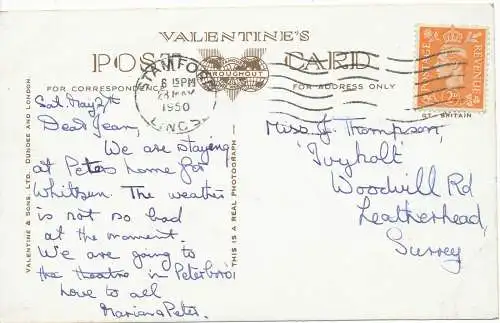 VALENTINE'S
POST CARD
THROUGHOUT
FOR CORRESPONDENCE
FOR ADDRESS ONLY
STAMFORD
6 15PM
MAY
1950
LINCS
POSTAGE
REVENUE
GT. BRITAIN
VALENTINE & SONS, LTD. DUNDEE AND LONDON.
THIS IS A REAL PHOTOGRAPH
Sat. May
Dear Jean,
We are staying
at Peters home for
Whitsun. The weather
is not so bad
at the moment.
We are going to
the theatre in Peterboro'.
Love to all
Marian & Peter.
Miss J. Thompson,
'Ivyholt'
Woodvill Rd
Leatherhead,
Surrey